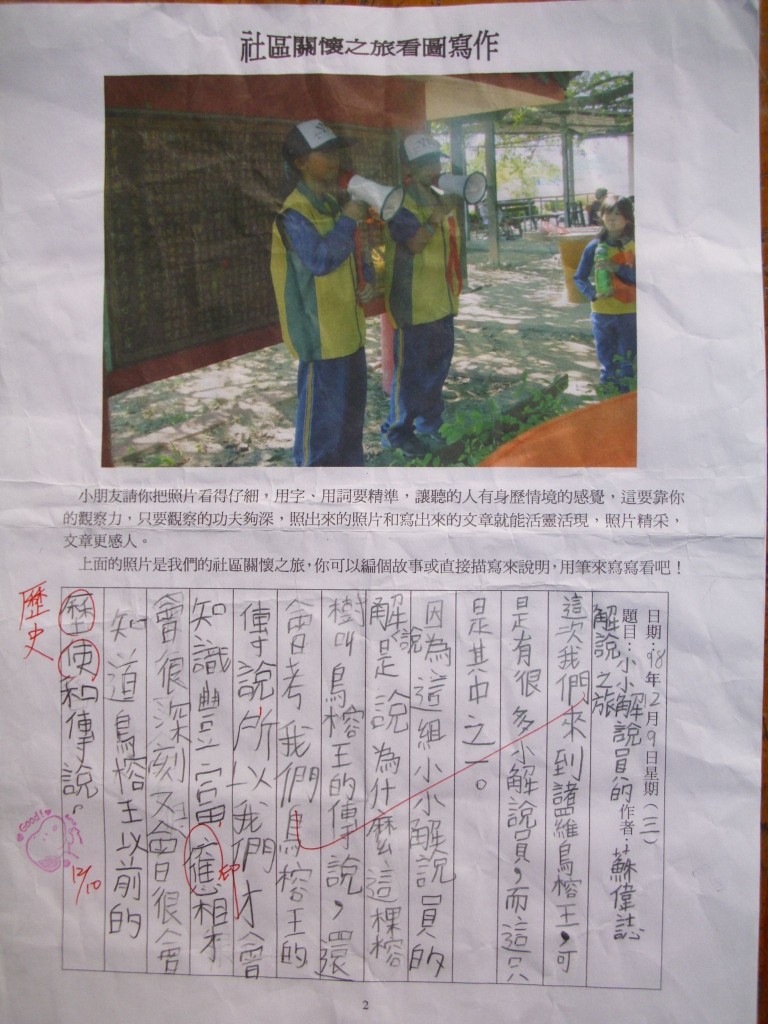 社區關懷之旅看圖寫作
小朋友請你把照片看得仔細，用字、用詞要精準，讓聽的人有身歷情境的感覺，這要靠你
的觀察力，只要觀察的功夫夠深，照出來的照片和寫出來的文章就能活靈活現，照片精采，
文章更感人。
上面的照片是我們的社區關懷之旅，你可以編個故事或直接描寫來說明，用筆來寫寫看吧！
日期：98年2月9日星期（二）
題目：小小解說員的 作者：蘇偉誌
解說之旅
這次我們來到諸維鳥榕王，可
是有很多小解說員，而這只
是其中之一。
因為這組小小解說員的
解說是說為什麼這棵榕
樹叫鳥榕王的傳說，還
會考我們鳥榕王的
傳說所以我們才會
知識豐富應相才
印
會很深刻又會很會
知道鳥榕王以前的
歷使和傳說。
歷史
Good!
12/10
2